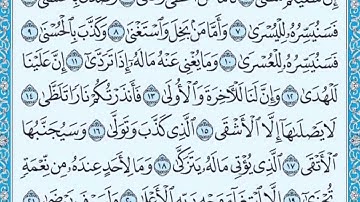 فَسَنُيَسِّرُهُۥ لِلْيُسْرَىٰ ٧ وَأَمَّا مَنۢ بَخِلَ وَٱسْتَغْنَىٰ ٨ وَكَذَّبَ بِٱلْحُسْنَىٰ ٩
فَسَنُيَسِّرُهُۥ لِلْعُسْرَىٰ ١٠ وَمَا يُغْنِى عَنْهُ مَالُهُۥٓ إِذَا تَرَدَّىٰٓ ١١ إِنَّ عَلَيْنَا
لَلْهُدَىٰ ١٢ وَإِنَّ لَنَا لَلْءَاخِرَةَ وَٱلْأُولَىٰ ١٣ فَأَنذَرْتُكُمْ نَارًا تَلَظَّىٰ ١٤
لَا يَصْلَىٰهَآ إِلَّا ٱلْأَشْقَى ١٥ ٱلَّذِى كَذَّبَ وَتَوَلَّىٰ ١٦ وَسَيُجَنَّبُهَا
ٱلْأَتْقَى ١٧ ٱلَّذِى يُؤْتِى مَالَهُۥ يَتَزَكَّىٰ ١٨ وَمَا لِأَحَدٍ عِندَهُۥ مِن نِّعْمَةٍ